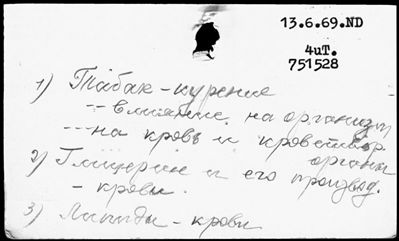 13.6.69.ND
4uT.
751528
1) Табак - курение
-- влияние на организм
--- на кровь и кроветвор.
органы
2) Глицерин и его производ.
- крови.
3) Липиды - крови